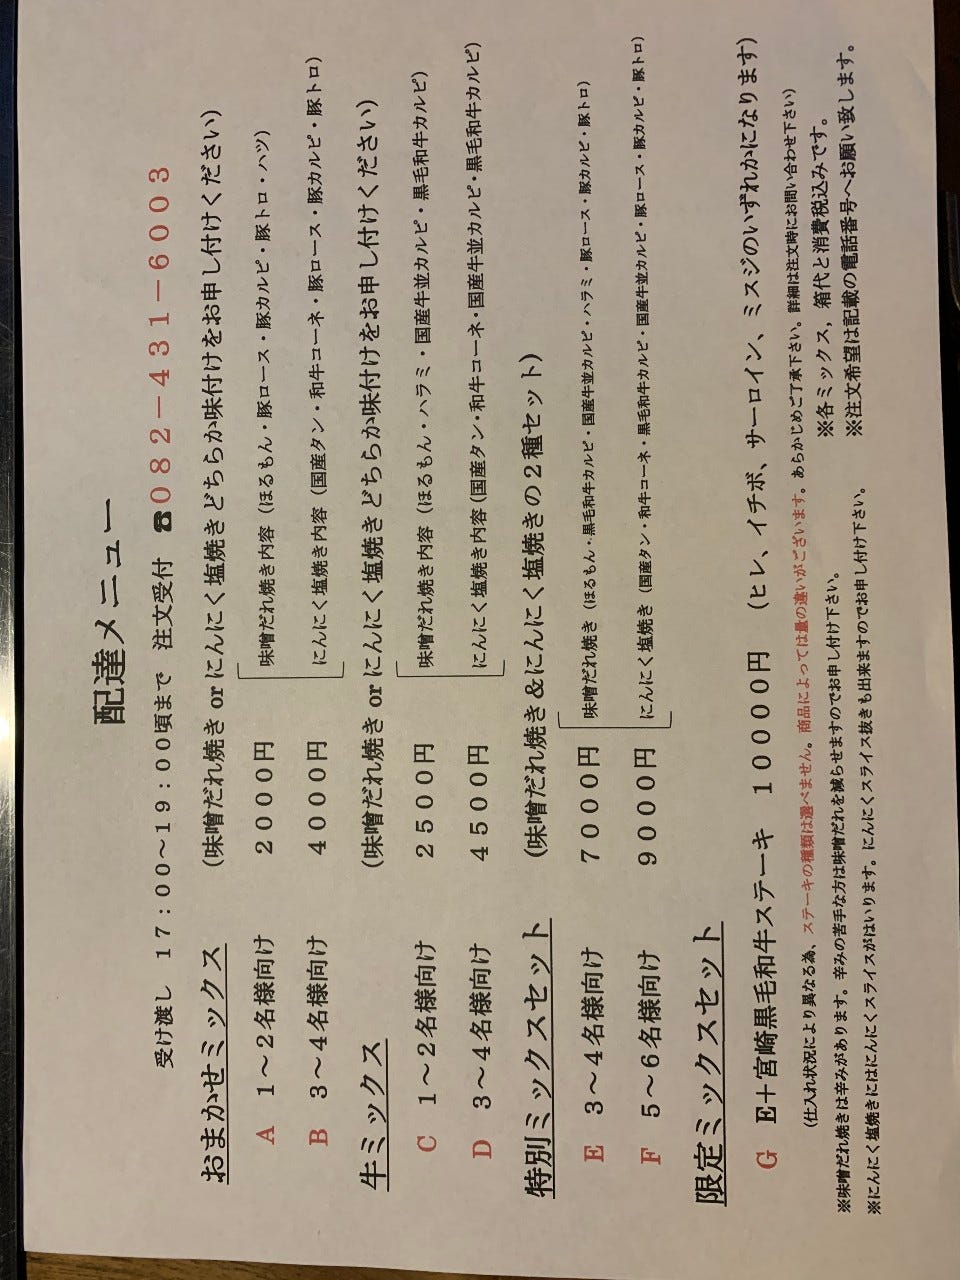 配達メニュー
受け渡し　１７：００〜１９：００頃まで　注文受付　☎０８２－４３１－６００３
おまかせミックス　（味噌だれ焼き or にんにく塩焼きどちらか味付けをお申し付けください）
A　１～２名様向け　２０００円　味噌だれ焼き内容（ほるもん・豚ロース・豚カルビ・豚トロ・ハツ）
B　３～４名様向け　４０００円　にんにく塩焼き内容（国産タン・和牛コーネ・豚ロース・豚カルビ・豚トロ）
牛ミックス　（味噌だれ焼き or にんにく塩焼きどちらか味付けをお申し付けください）
C　１～２名様向け　２５００円　味噌だれ焼き内容（ほるもん・ハラミ・国産牛並カルビ・黒毛和牛カルビ）
D　３～４名様向け　４５００円　にんにく塩焼き内容（国産タン・和牛コーネ・国産牛並カルビ・黒毛和牛カルビ）
特別ミックスセット　（味噌だれ焼き＆にんにく塩焼きの２種セット）
E　３～４名様向け　７０００円　味噌だれ焼き（ほるもん・黒毛和牛カルビ・国産牛並カルビ・ハラミ・豚ロース・豚カルビ・豚トロ）
F　５～６名様向け　９０００円　にんにく塩焼き（国産タン・和牛コーネ・黒毛和牛カルビ・国産牛並カルビ・豚ロース・豚カルビ・豚トロ）
限定ミックスセット
G　E＋宮崎黒毛和牛ステーキ　１００００円　（ヒレ、イチボ、サーロイン、ミスジのいずれかになります）
（仕入れ状況により異なる為、ステーキの種類は選べません。商品によっては量の違いがございます。あらかじめご了承下さい。詳細は注文時にお問い合わせ下さい）
※味噌だれ焼きは辛みがあります。辛みの苦手な方は味噌だれを減らせますのでお申し付け下さい。　※各ミックス，箱代と消費税込みです。
※にんにく塩焼きにはにんにくスライスがはいります。にんにくスライス抜きも出来ますのでお申し付け下さい。　※注文希望は記載の電話番号へお願い致します。